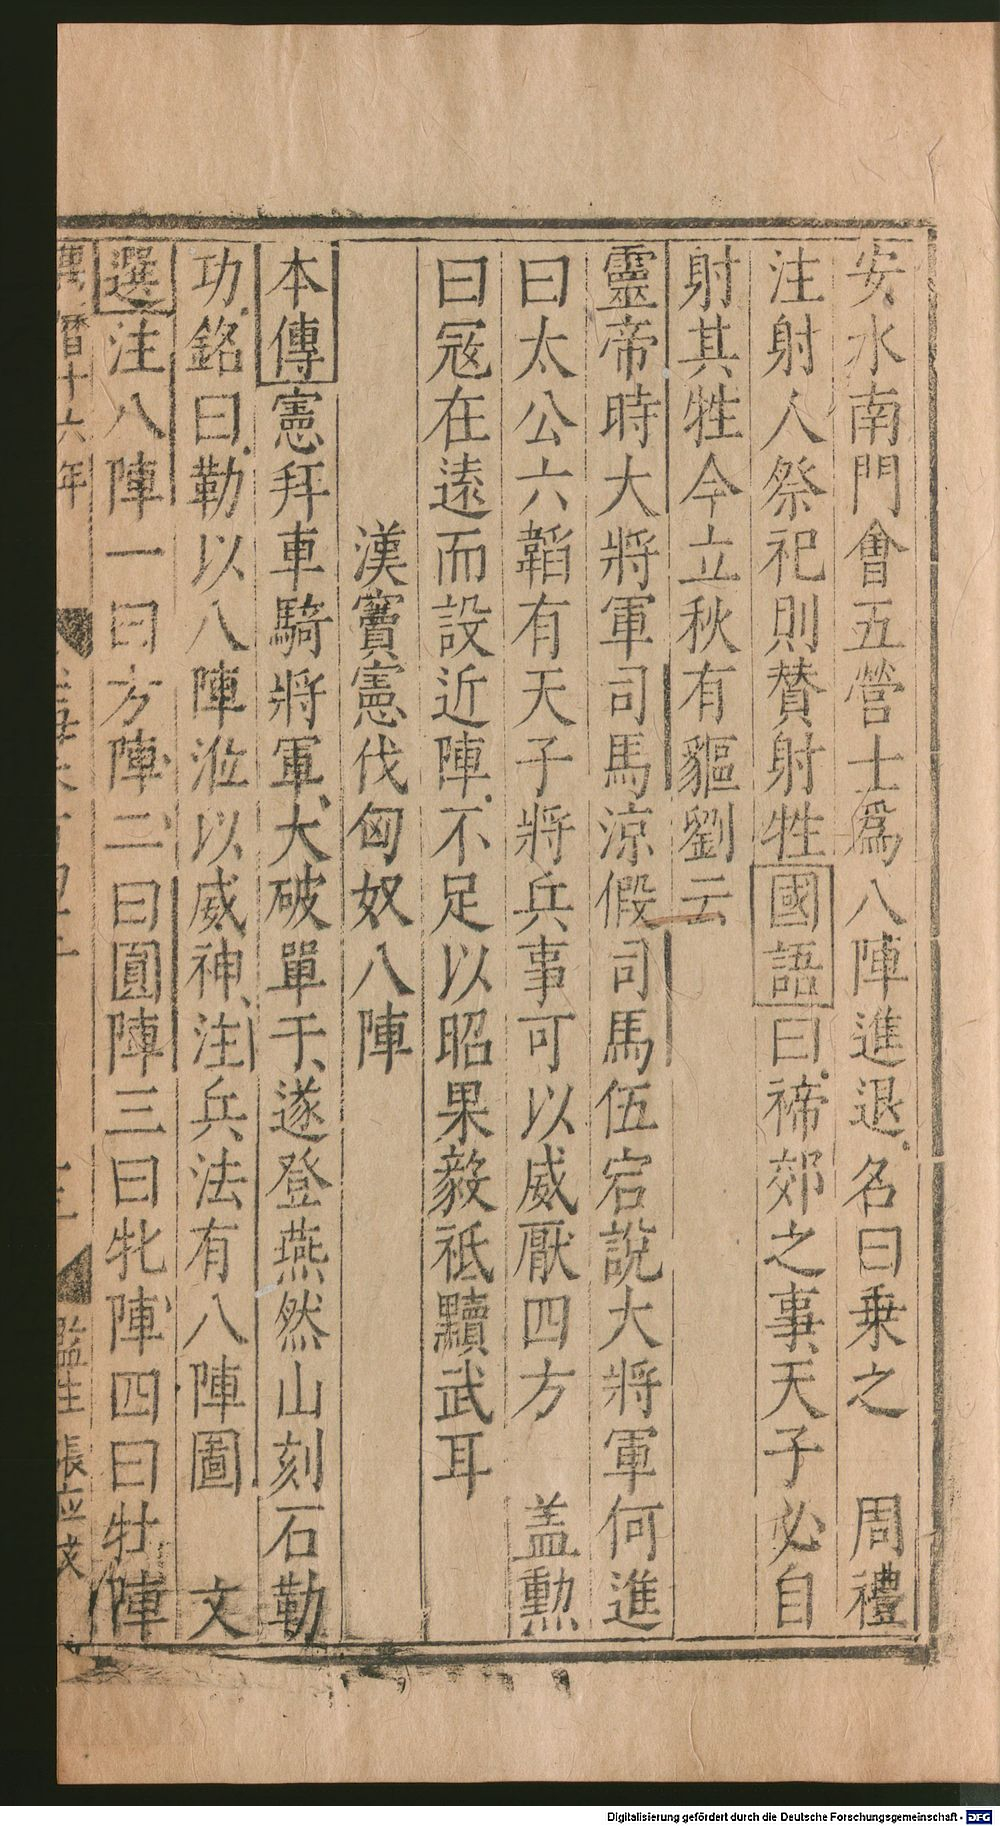 安水南門會五營士爲八陣進退名曰乗之　周禮
注射人祭祀則賛射牲國語曰禘郊之事天子必自
射其牲今立秋有貙劉云
靈帝時大將軍司馬涼假司馬伍宕說大將軍何進
曰太公六韜有天子將兵事可以威厭四方　盖勲
曰冦在逺而設近陣不足以昭果毅祗黷武耳
漢竇憲伐匈奴八陣
本傳憲拜車騎將軍大破單于遂登燕然山刻石勒
功銘曰勒以八陣涖以威神注兵法有八陣圖　文
選注八陣一曰方陣二曰圓陣三曰牝陣四曰牡陣
萬曆十六年
監生
Digitalisierung gefördert durch die Deutsche Forschungsgemeinschaft - DFG